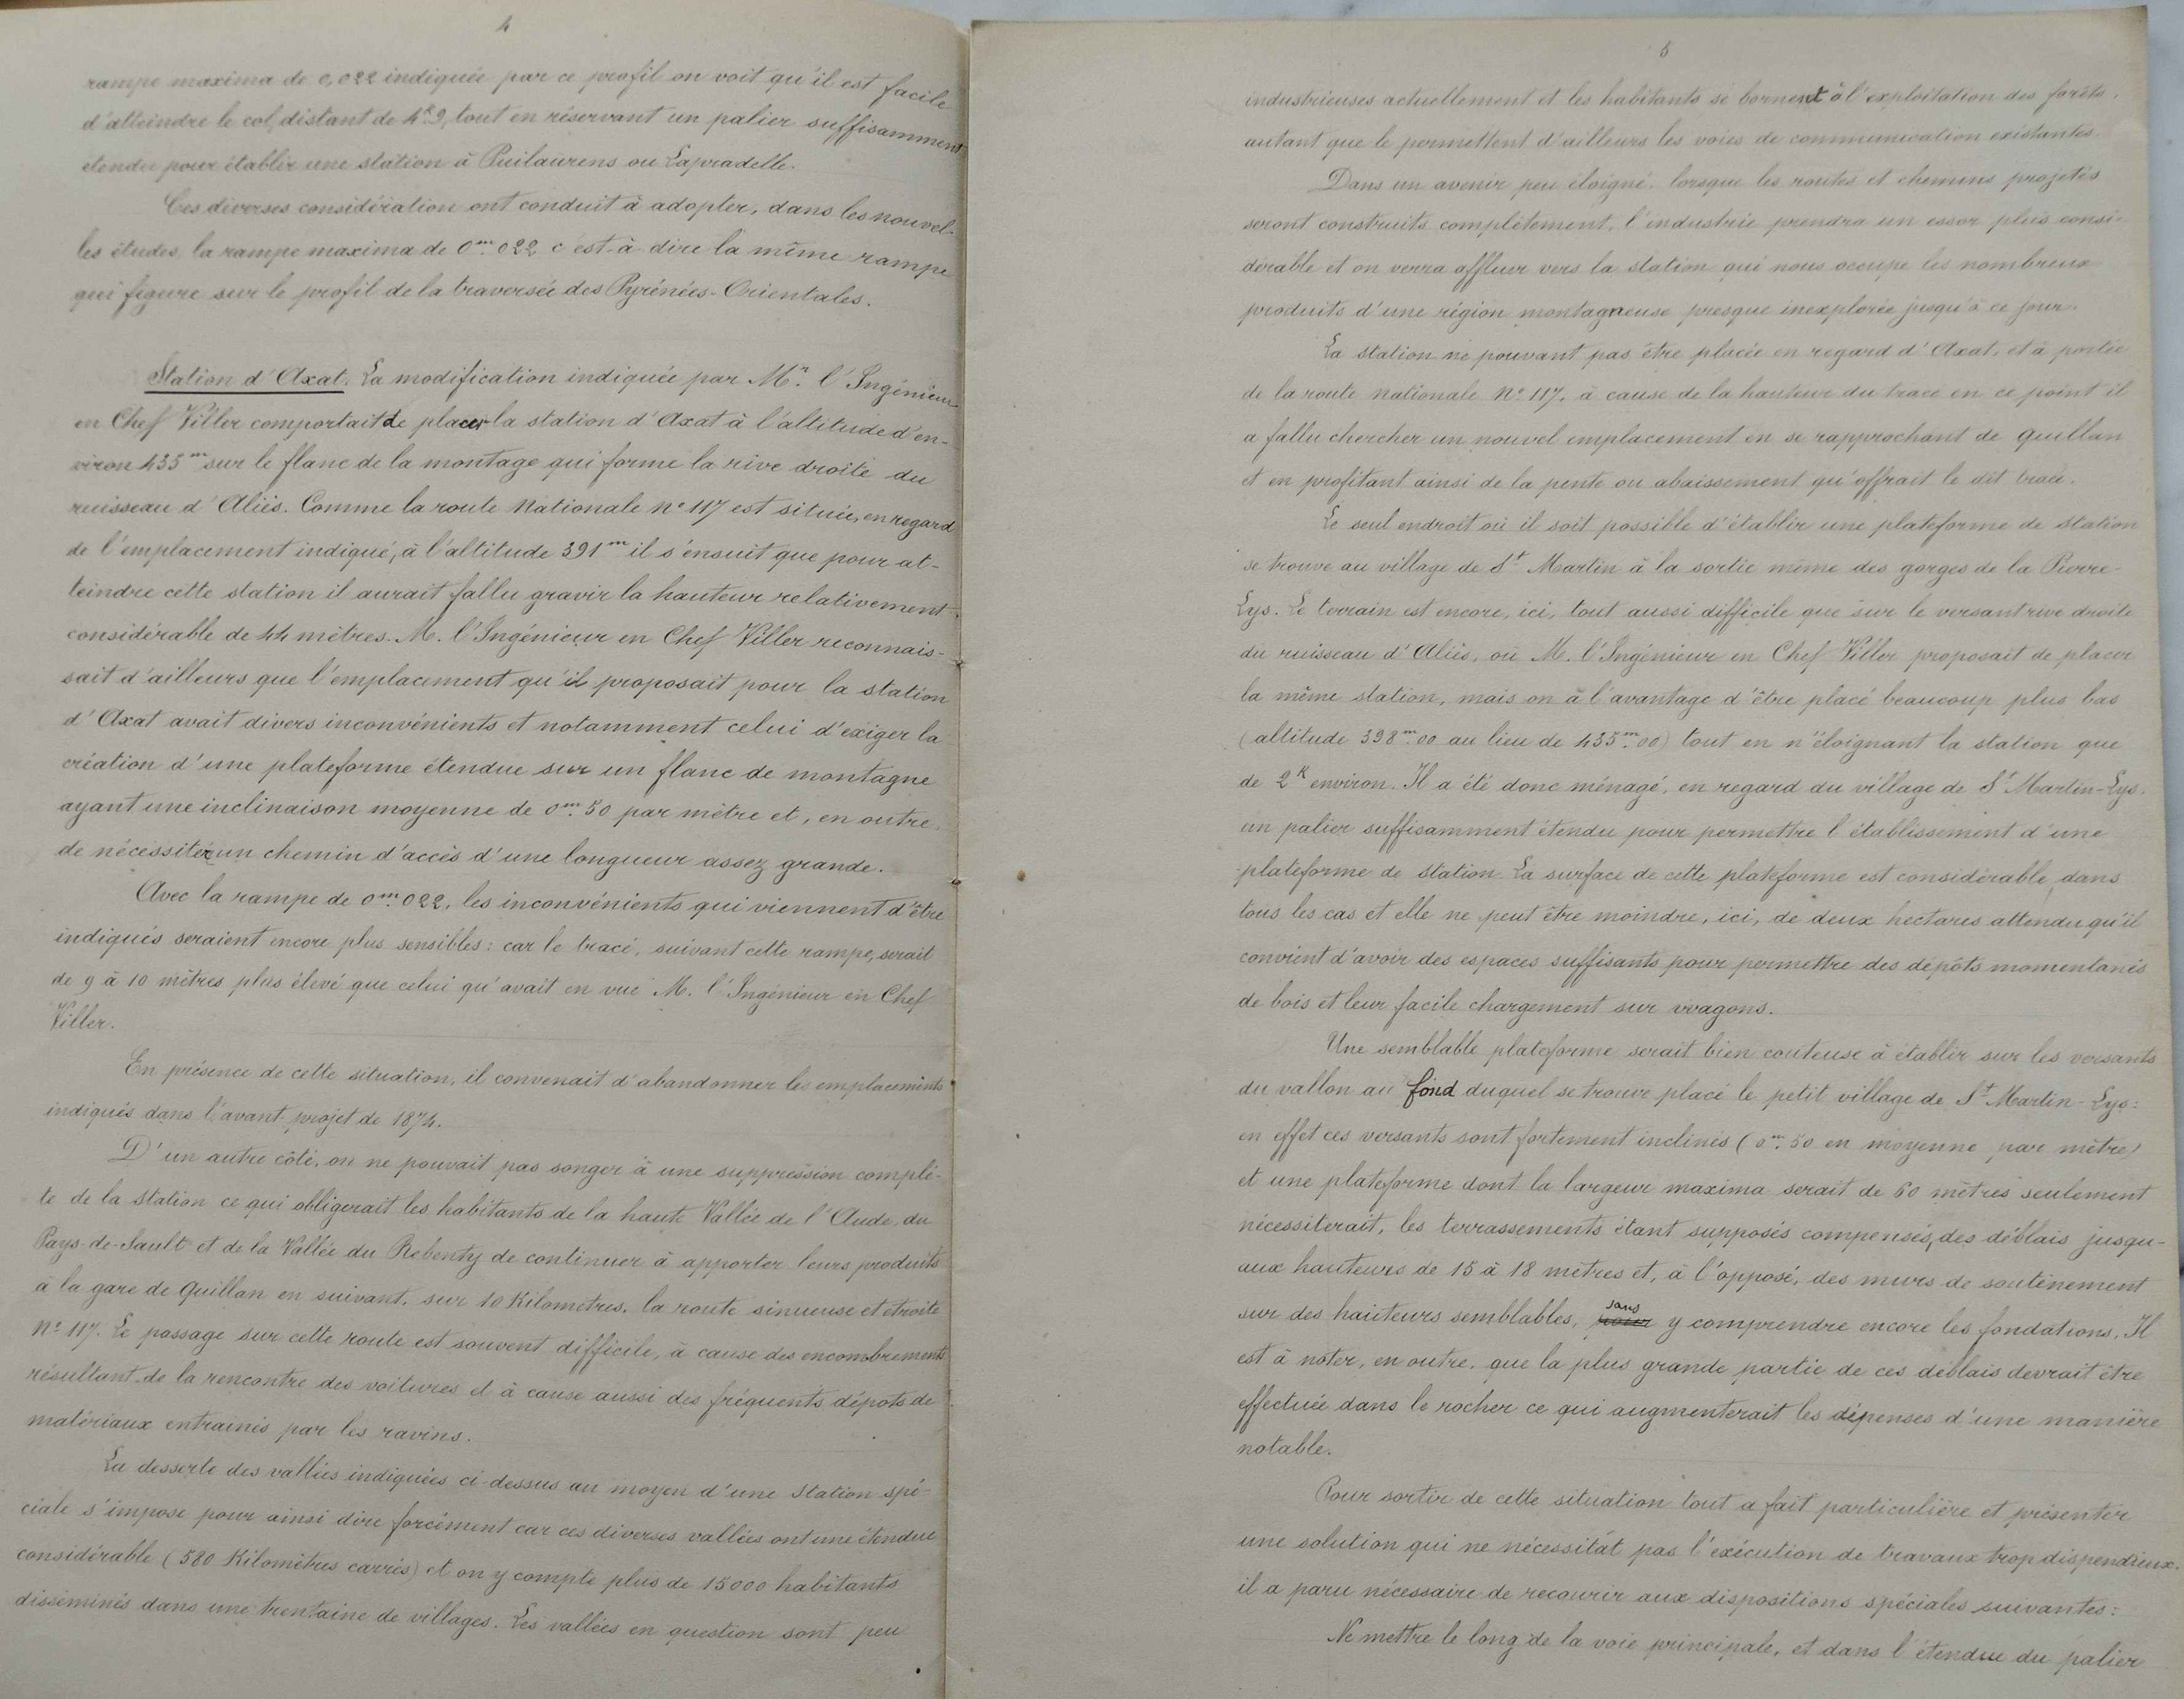 4
rampe maxima de 0,022 indiquée par ce profil on voit qu'il est facile
d'atteindre le col, distant de 4k.9, tout en réservant un palier suffisamment
étendu pour établir une station à Puilaurens ou Lapradelle.
Ces diverses considération ont conduit à adopter, dans les nouvel-
les études, la rampe maxima de 0m.022 c'est-à-dire la même rampe
qui figure sur le profil de la traversée des Pyrénées-Orientales.
Station d'Axat. La modification indiquée par Mr. l'Ingénieur
en Chef Viller comportait de placer la station d'Axat à l'altitude d'en-
viron 435m sur le flanc de la montage qui forme la rive droite du
ruisseau d'Aliès. Comme la route Nationale No 117 est située, en regard
de l'emplacement indiqué, à l'altitude 391m il s'ensuit que pour at-
teindre cette station il aurait fallu gravir la hauteur relativement
considérable de 44 mètres. M. l'Ingénieur en Chef Viller reconnais-
sait d'ailleurs que l'emplacement qu'il proposait pour la station
d'Axat avait divers inconvénients et notamment celui d'exiger la
création d'une plateforme étendue sur un flanc de montagne
ayant une inclinaison moyenne de 0m.50 par mètre et, en outre,
de nécessiter un chemin d'accès d'une longueur assez grande.
Avec la rampe de 0m.022, les inconvénients qui viennent d'être
indiqués seraient encore plus sensibles: car le tracé, suivant cette rampe, serait
de 9 à 10 mètres plus élevé que celui qu'avait en vue M. l'Ingénieur en Chef
Viller.
En présence de cette situation, il convenait d'abandonner les emplacements
indiqués dans l'avant-projet de 1874.
D'un autre côté, on ne pouvait pas songer à une suppression complè-
te de la station ce qui obligerait les habitants de la haute Vallée de l'Aude, du
Pays-de-Sault et de la Vallée du Rebenty de continuer à apporter leurs produits
à la gare de Quillan en suivant, sur 10 Kilomètres, la route sinueuse et étroite
No 117. Le passage sur cette route est souvent difficile, à cause des encombrements
résultant de la rencontre des voitures et à cause aussi des fréquents dépots de
matériaux entrainés par les ravins.
La desserte des vallées indiquées ci-dessus au moyen d'une station spé-
ciale s'impose pour ainsi dire forcément car ces diverses vallées ont une étendue
considérable (580 Kilomètres carrés) et on y compte plus de 15000 habitants
disséminés dans une trentaine de villages. Les vallées en question sont peu
5
industrieuses actuellement et les habitants se bornent à l'exploitation des forêts,
autant que le permettent d'ailleurs les voies de communication existantes.
Dans un avenir peu éloigné, lorsque les routes et chemins projetés
seront construits complètement, l'industrie prendra un essor plus consi-
dérable et on verra affluer vers la station qui nous occupe les nombreux
produits d'une région montagneuse presque inexplorée jusqu'à ce jour.
La station ne pouvant pas être placée en regard d'Axat, et à portée
de la route nationale No 117, à cause de la hauteur du tracé en ce point il
a fallu chercher un nouvel emplacement en se rapprochant de Quillan
et en profitant ainsi de la pente ou abaissement qu'offrait le dit tracé.
Le seul endroit où il soit possible d'établir une plateforme de station
se trouve au village de St Martin à la sortie même des gorges de la Pierre-
Lys. Le terrain est encore, ici, tout aussi difficile que sur le versant rive droite
du ruisseau d'Aliès, où M. l'Ingénieur en Chef Viller proposait de placer
la même station, mais on à l'avantage d'être placé beaucoup plus bas
(altitude 398m.00 au lieu de 435m.00) tout en n'éloignant la station que
de 2k environ. Il a été donc ménagé, en regard du village de St Martin-Lys,
un palier suffisamment étendu pour permettre l'établissement d'une
plateforme de station. La surface de cette plateforme est considérable dans
tous les cas et elle ne peut être moindre, ici, de deux hectares attendu qu'il
convient d'avoir des espaces suffisants pour permettre des dépôts momentanés
de bois et leur facile chargement sur wagons.
Une semblable plateforme serait bien couteuse à établir sur les versants
du vallon au fond duquel se trouve placé le petit village de St Martin-Lys:
en effet ces versants sont fortement inclinés (0m.50 en moyenne par mètre)
et une plateforme dont la largeur maxima serait de 60 mètres seulement
nécessiterait, les terrassements étant supposés compensés, des déblais jusqu'-
aux hauteurs de 15 à 18 mètres et, à l'opposé, des murs de soutènement
sur des hauteurs semblables, sans y comprendre encore les fondations. Il
est à noter, en outre, que la plus grande partie de ces déblais devrait être
effectuée dans le rocher ce qui augmenterait les dépenses d'une manière
notable.
Pour sortir de cette situation tout a fait particulière et présenter
une solution qui ne nécessitât pas l'exécution de travaux trop dispendieux,
il a paru nécessaire de recourir aux dispositions spéciales suivantes:
Ne mettre le long de la voie principale, et dans l'étendue du palier